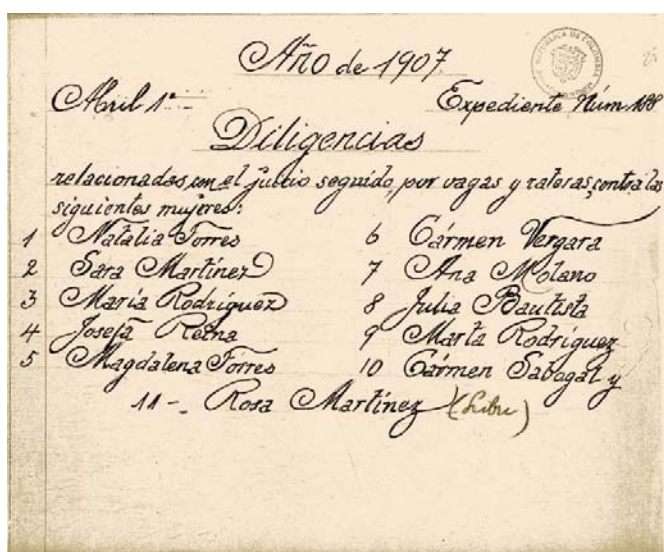 Año de 1907.
REPUBLICA DE COLOMBIA
Abril 1º
Expediente Núm. 188
Diligencias
relacionadas con el juicio seguido, por vagas y rateras, contra las
siguientes mujeres:
1 Natalia Torres
2 Sara Martínez
3 María Rodríguez
4 Josefa Reina
5 Magdalena Torres
6 Cármen Vergara
7 Ana Molano
8 Julia Bautista
9 Marta Rodríguez
10 Cármen Sabogal y
11 - Rosa Martínez (Libre)